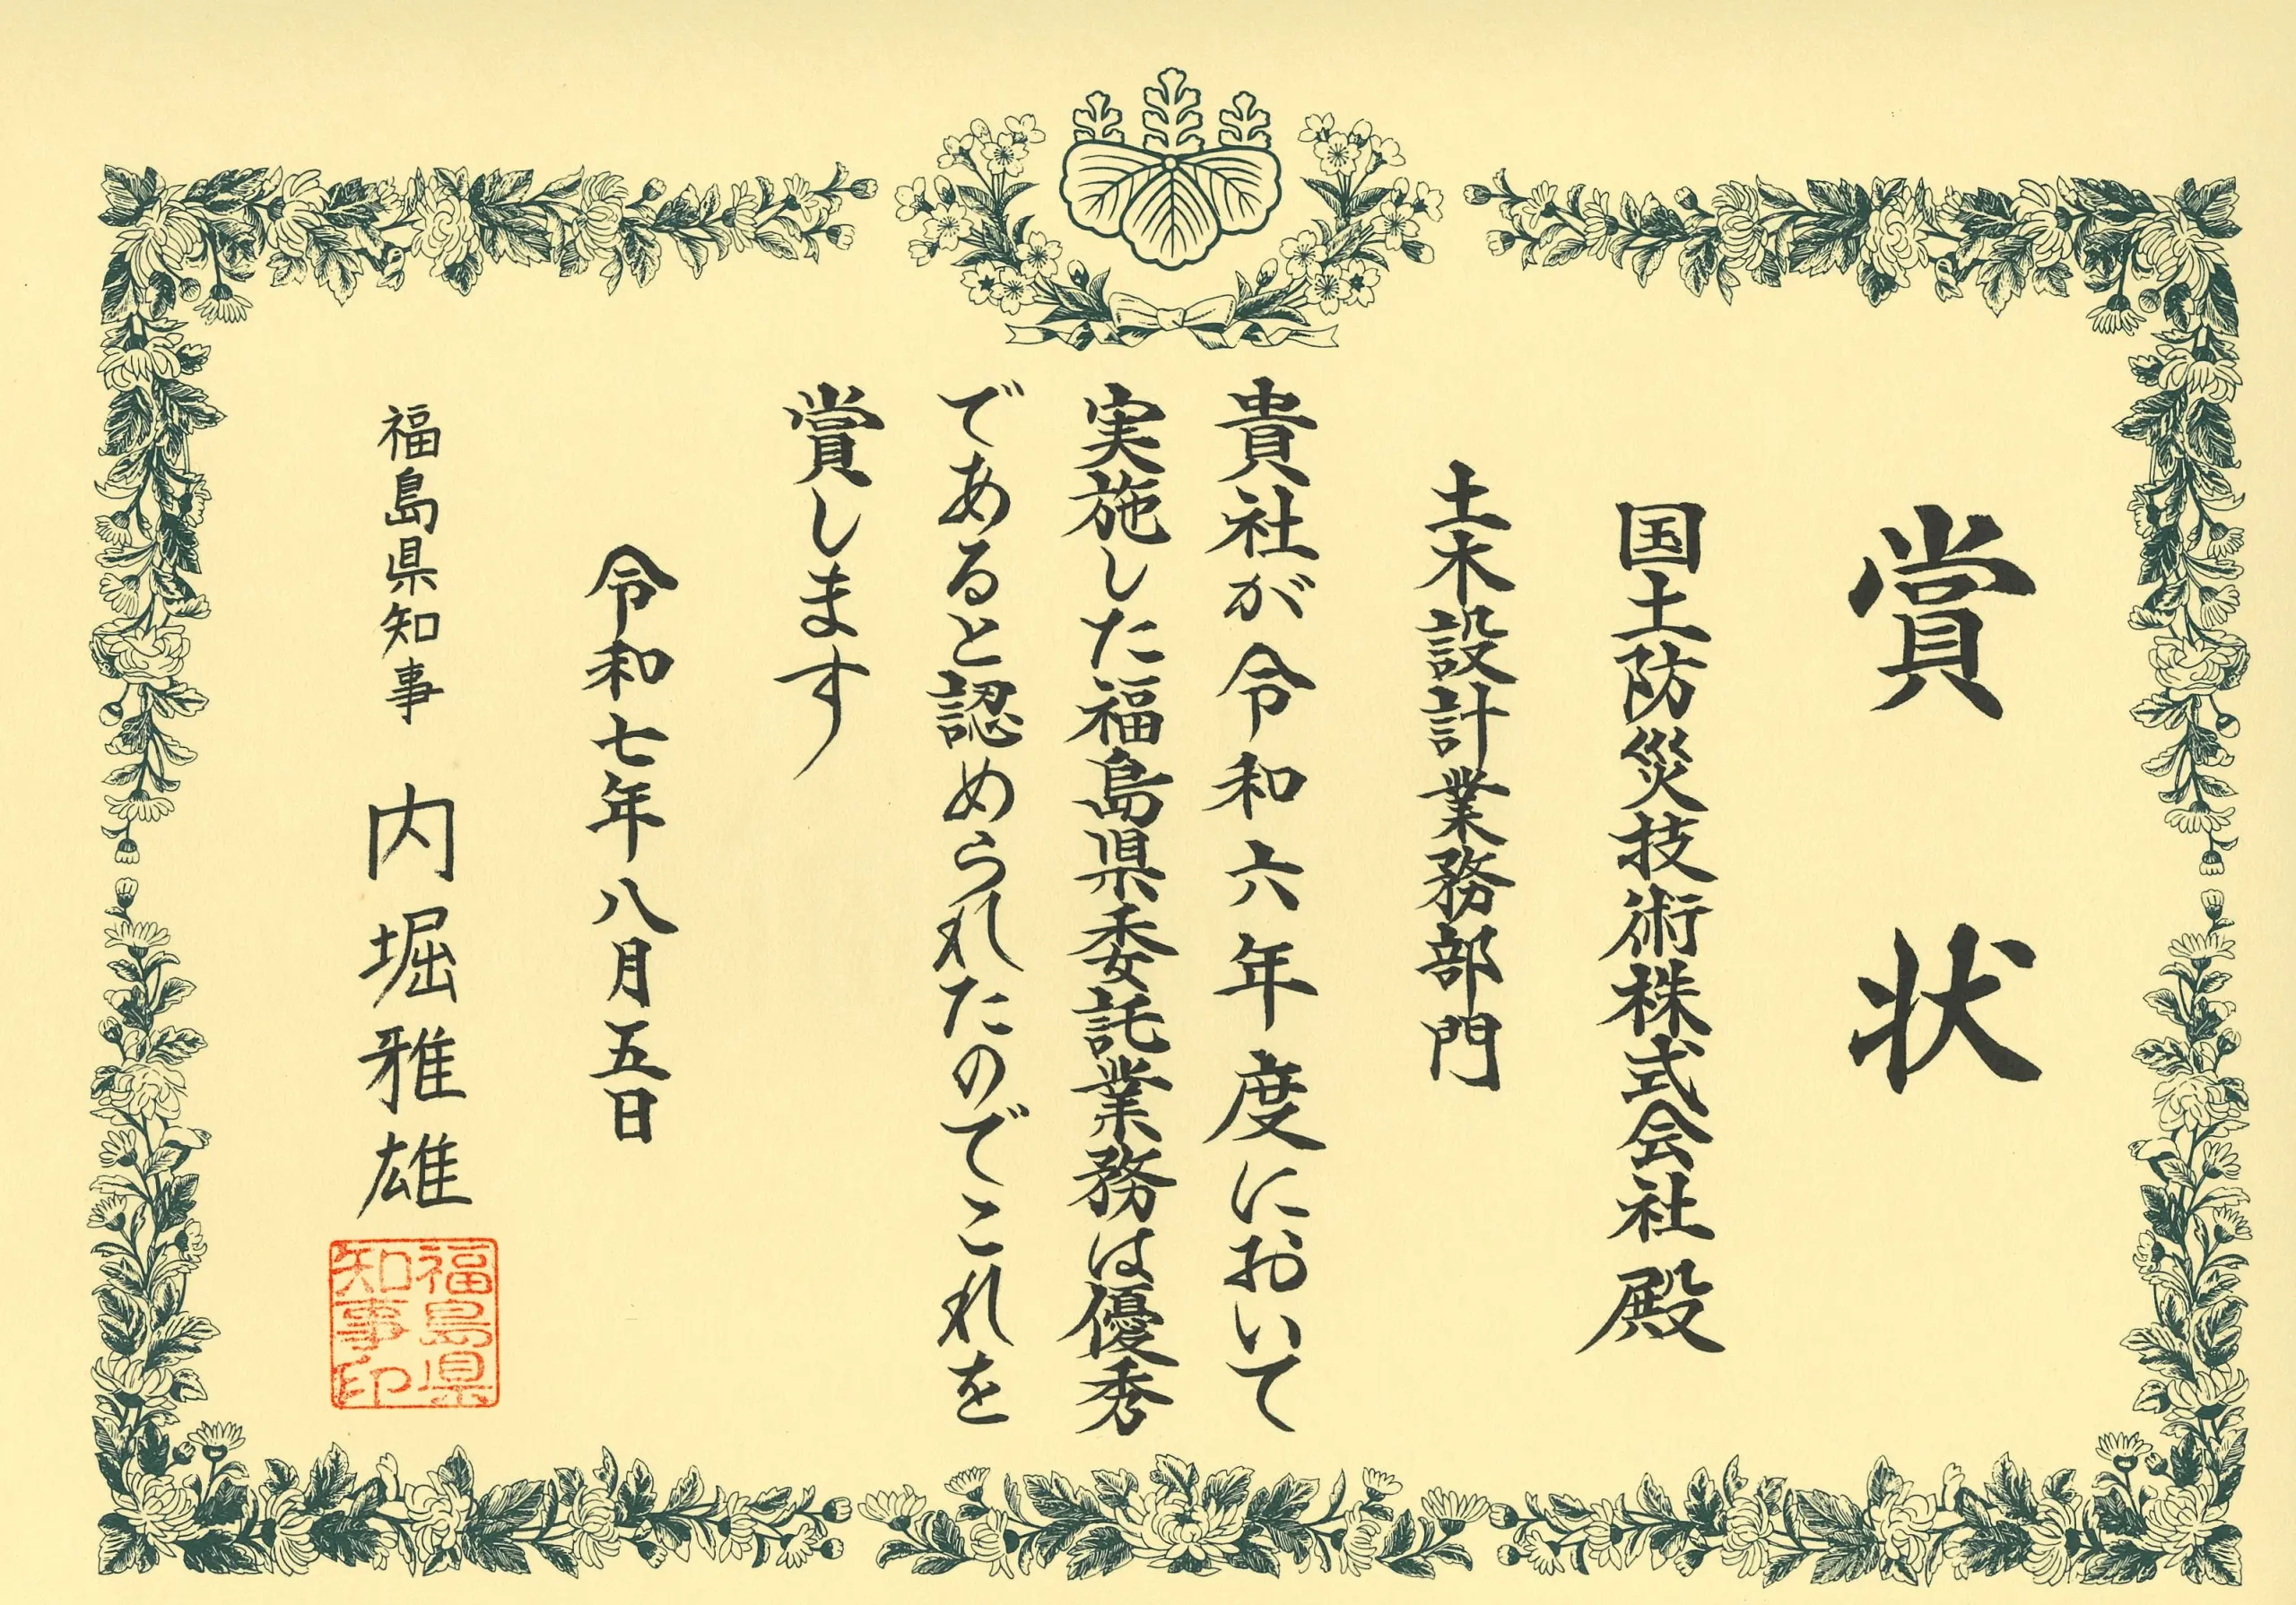 賞状
国土防災技術株式会社 殿
土木設計業務部門
貴社が令和六年度において
実施した福島県委託業務は優秀
であると認められたのでこれを
賞します
令和七年八月五日
福島県知事 内堀雅雄
福島県
知事印